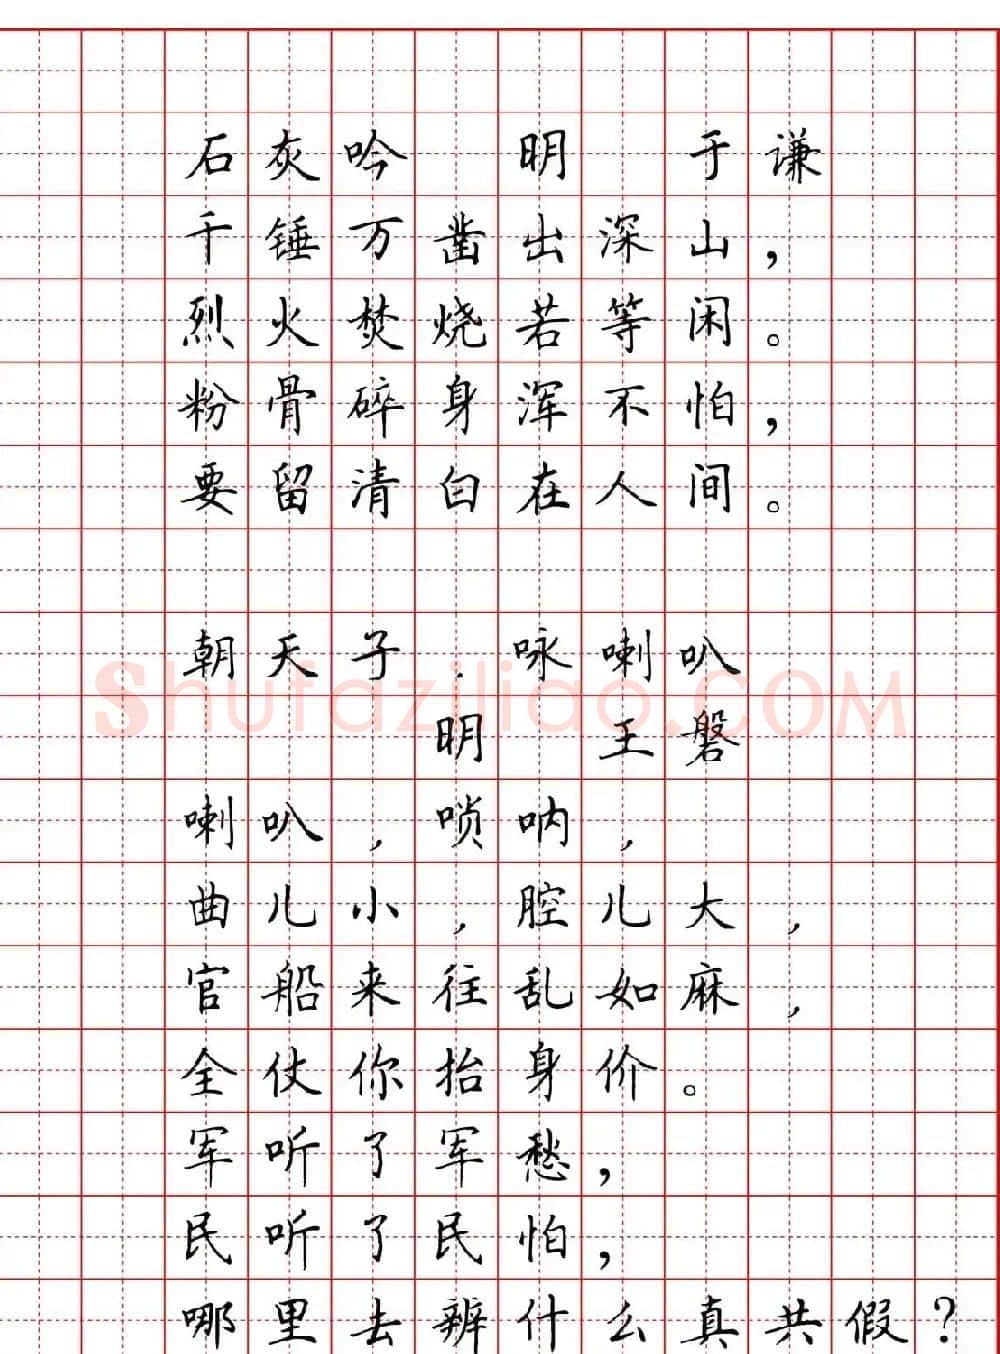 石灰吟 明 于谦
千锤万凿出深山，
烈火焚烧若等闲。
粉骨碎身浑不怕，
要留清白在人间。
朝天子·咏喇叭
shufaziliao.COM
明 王磐
喇叭，唢呐，
曲儿小，腔儿大，
官船来往乱如麻，
全仗你抬身价。
军听了军愁，
民听了民怕，
哪里去辨什么真共假？